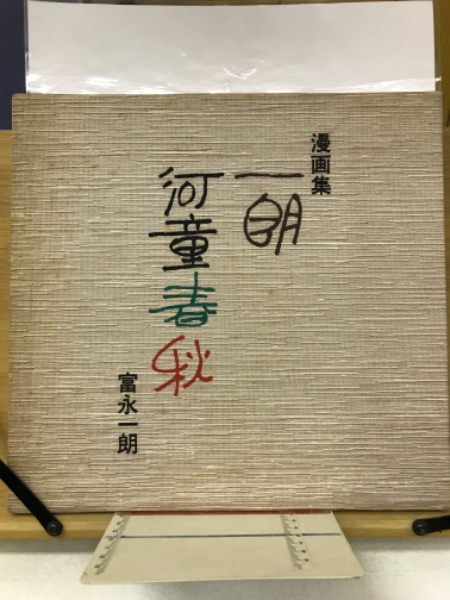 漫画集
一朗
河童春秋
富永一朗